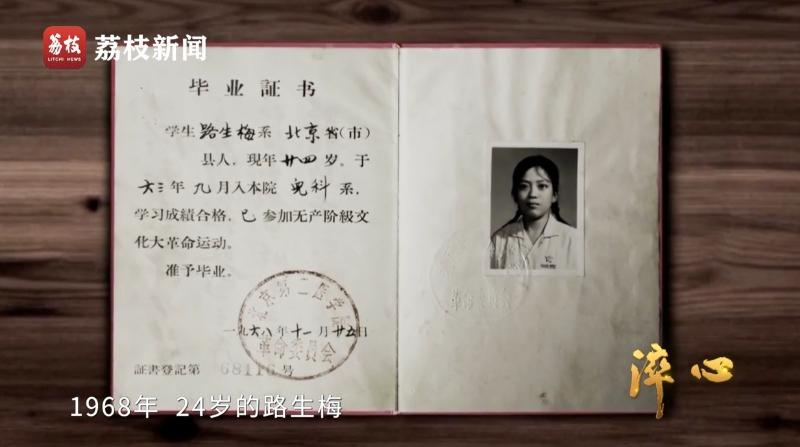 荔枝
LITCHI NEWS
荔枝新闻
毕业証书
学生路生梅系 北京省(市)
县人，现年廿四岁。于
六三年九月入本院 児科系，
学习成績合格，已参加无产阶級文
化大革命运动。
准予毕业。
北京第二医学院
革命委員会
一九六八年十一月廿五日
証書登記第 68116 号
革命委員会
淬心
1968年 24岁的路生梅